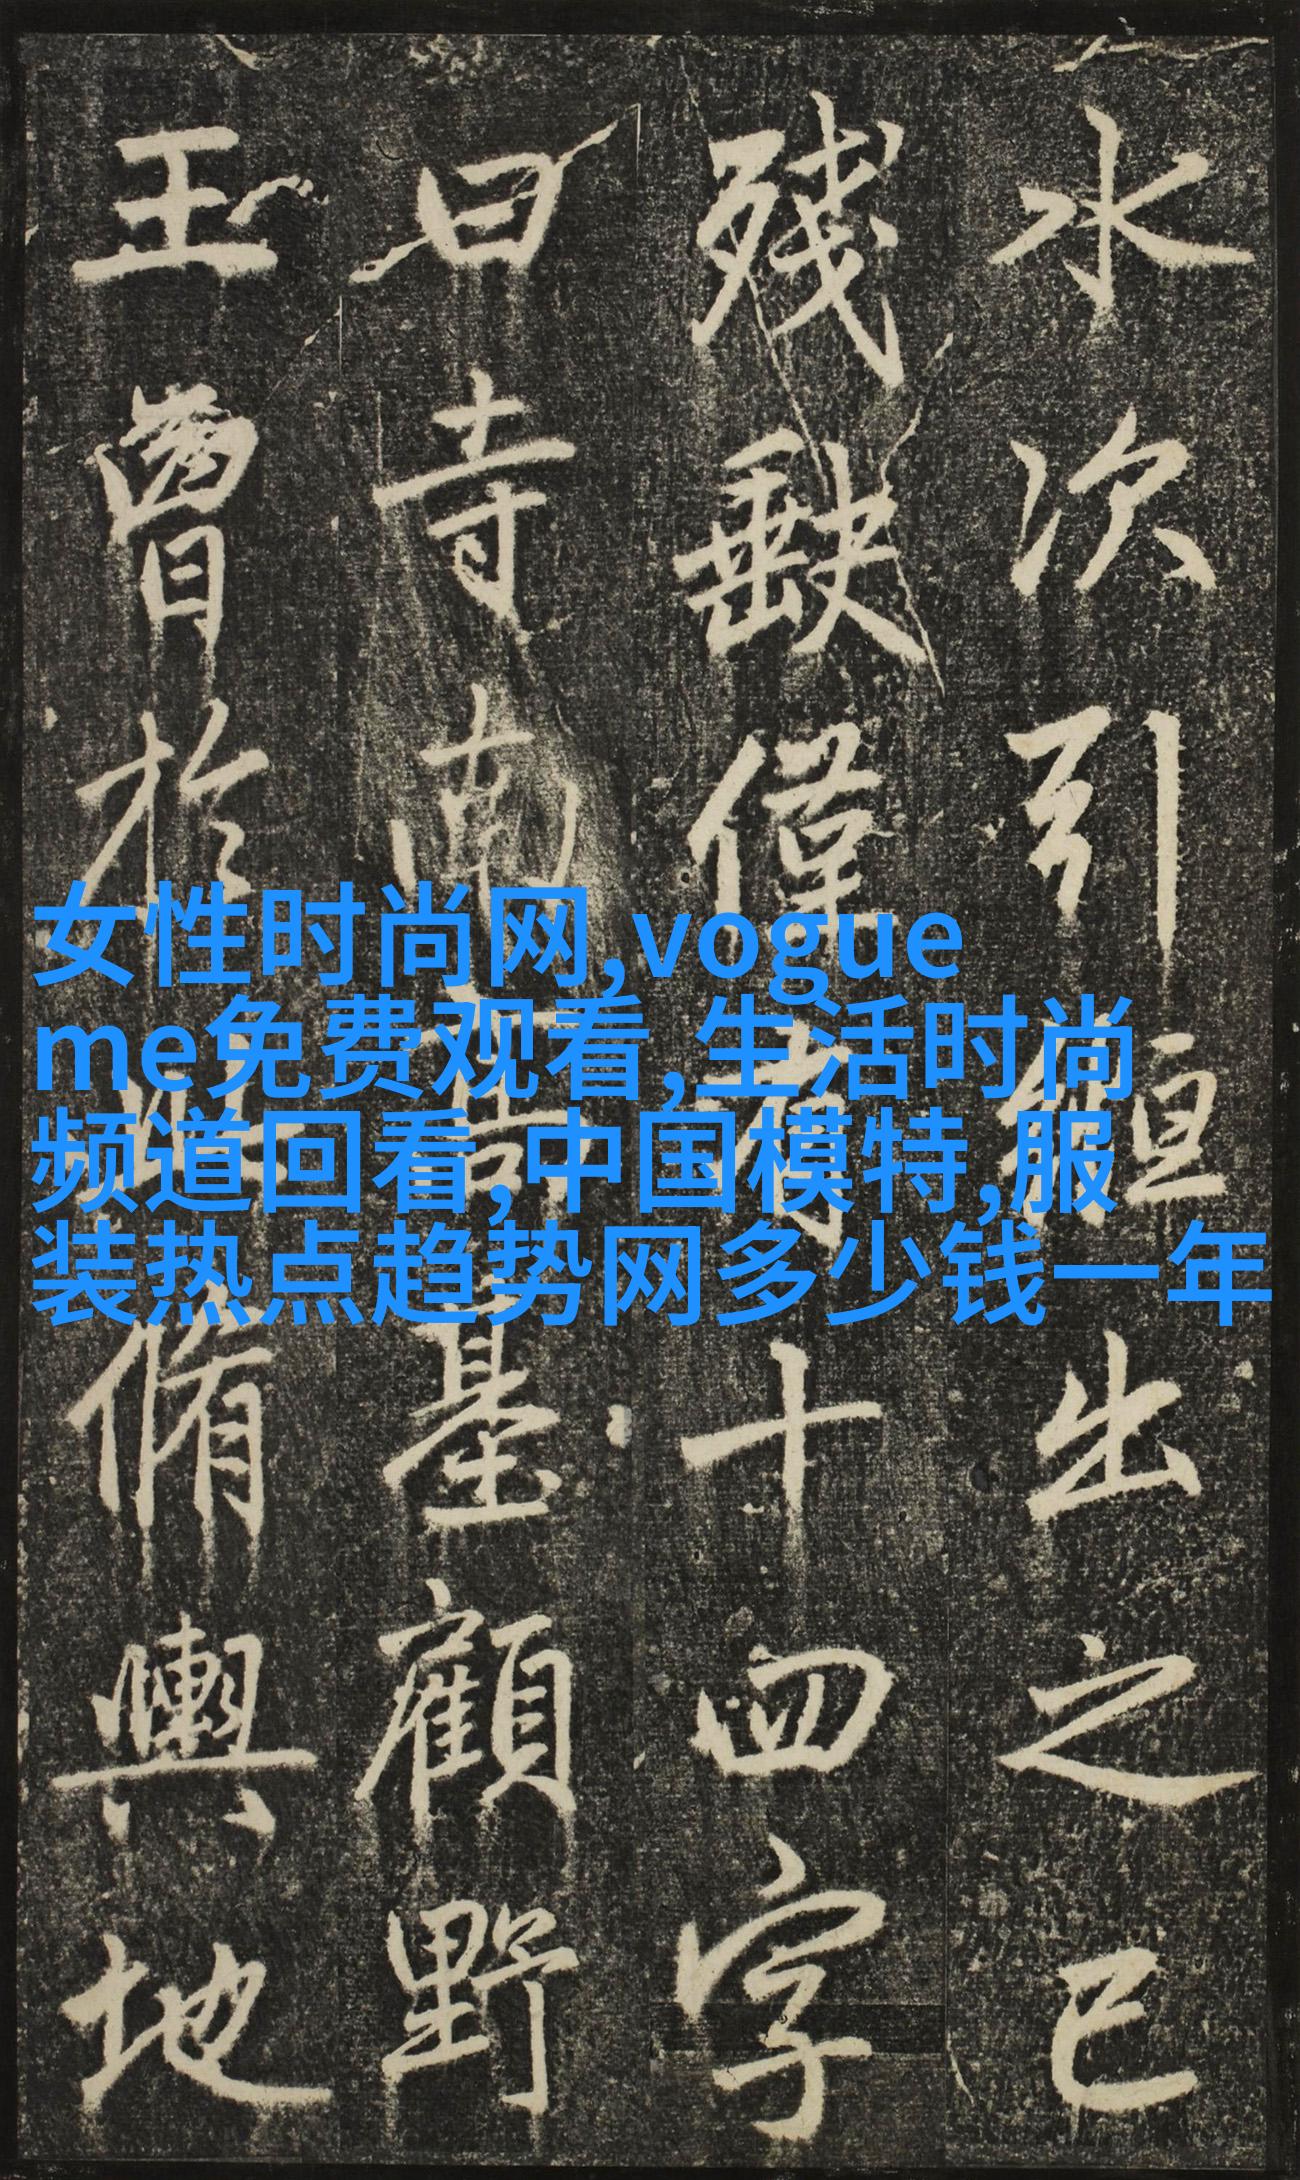 水次引縆出之已
殘缺僅十四字
曰寺南高基顧野
王曾於此脩輿地
女性时尚网,vogue
me免费观看,生活时尚
频道回看,中国模特,服
装热点趋势网多少钱一年